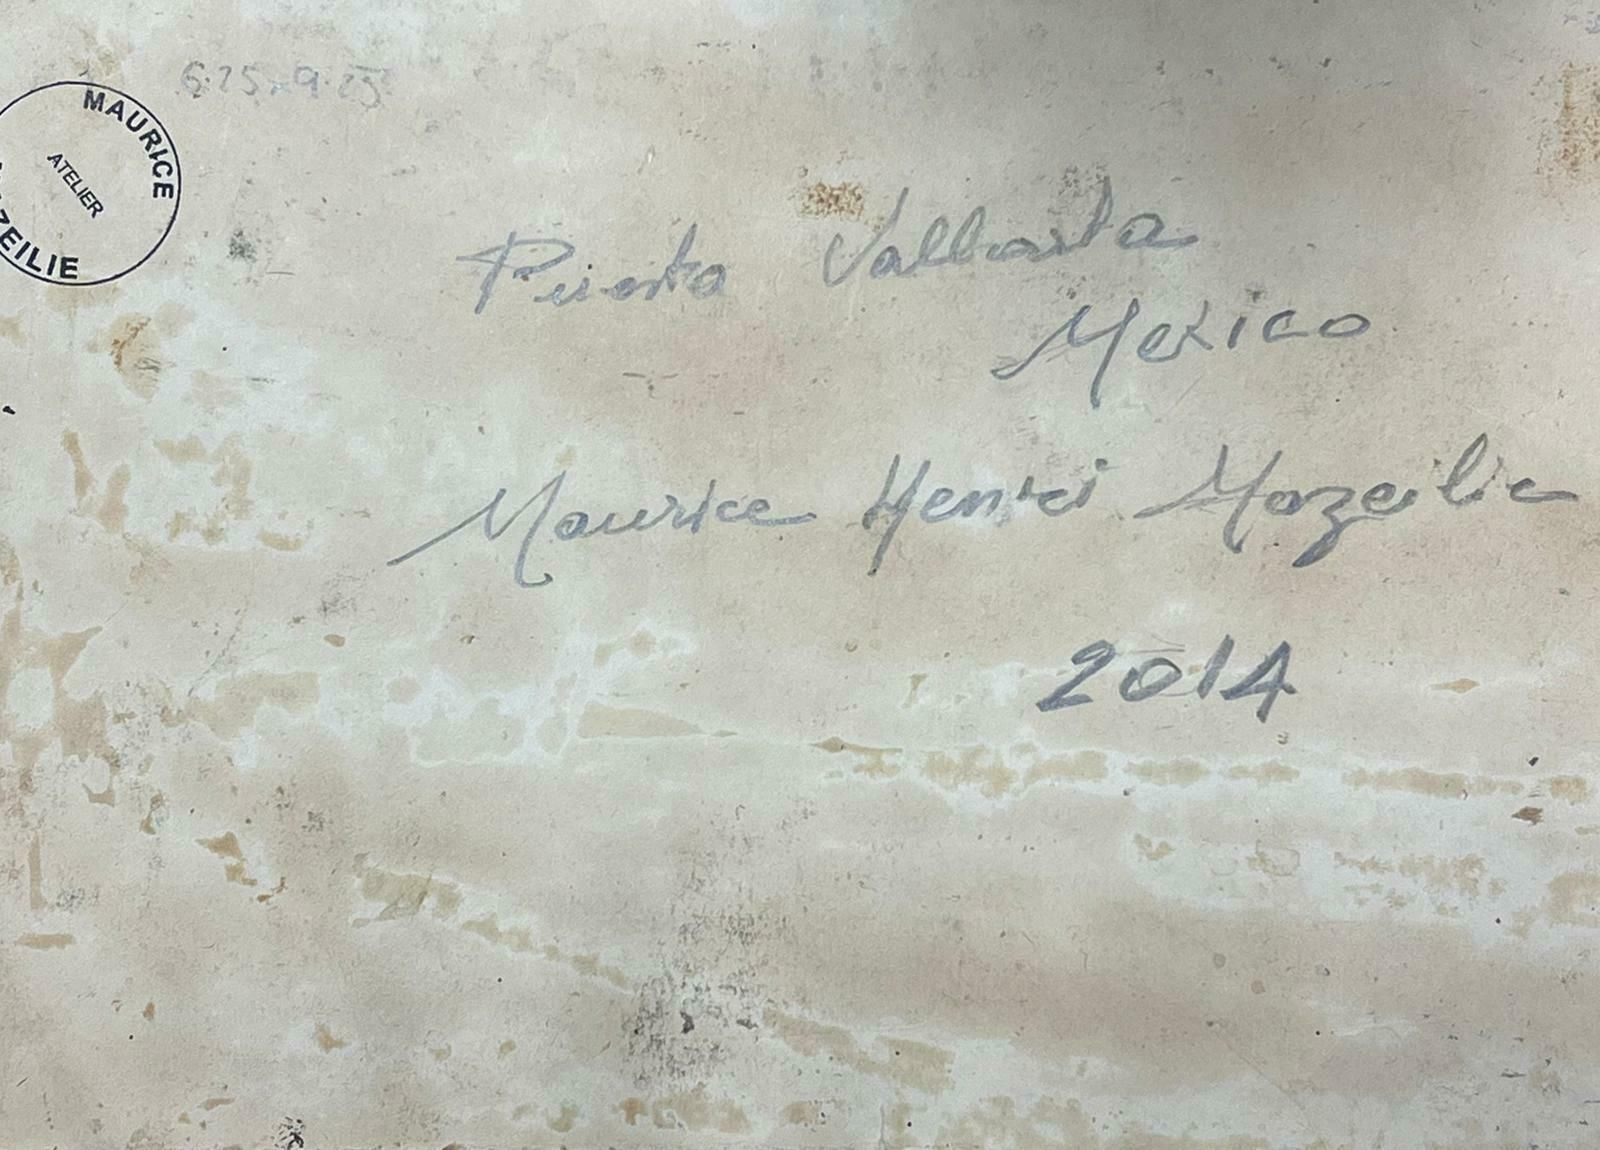 6.25x9.25
MAURICE
ATELIER
ZEILIE
Puerto Vallarta
Mexico
Maurice Henri Mazeilie
2014